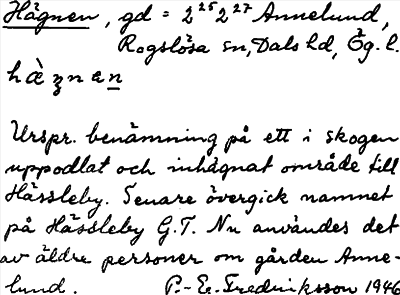 Hägnen, gd = 2²⁵2²⁷ Annelund,
Rogslösa sn, Dals hd, Ög. l.
hàʒnan
Urspr. benämning på ett i skogen
uppodlat och inhägnat område till
Hässleby. Senare övergick namnet
på Hässleby G.T. Nu användes det
av äldre personer om gården Anne-
lund. P.-E. Fredriksson 1946